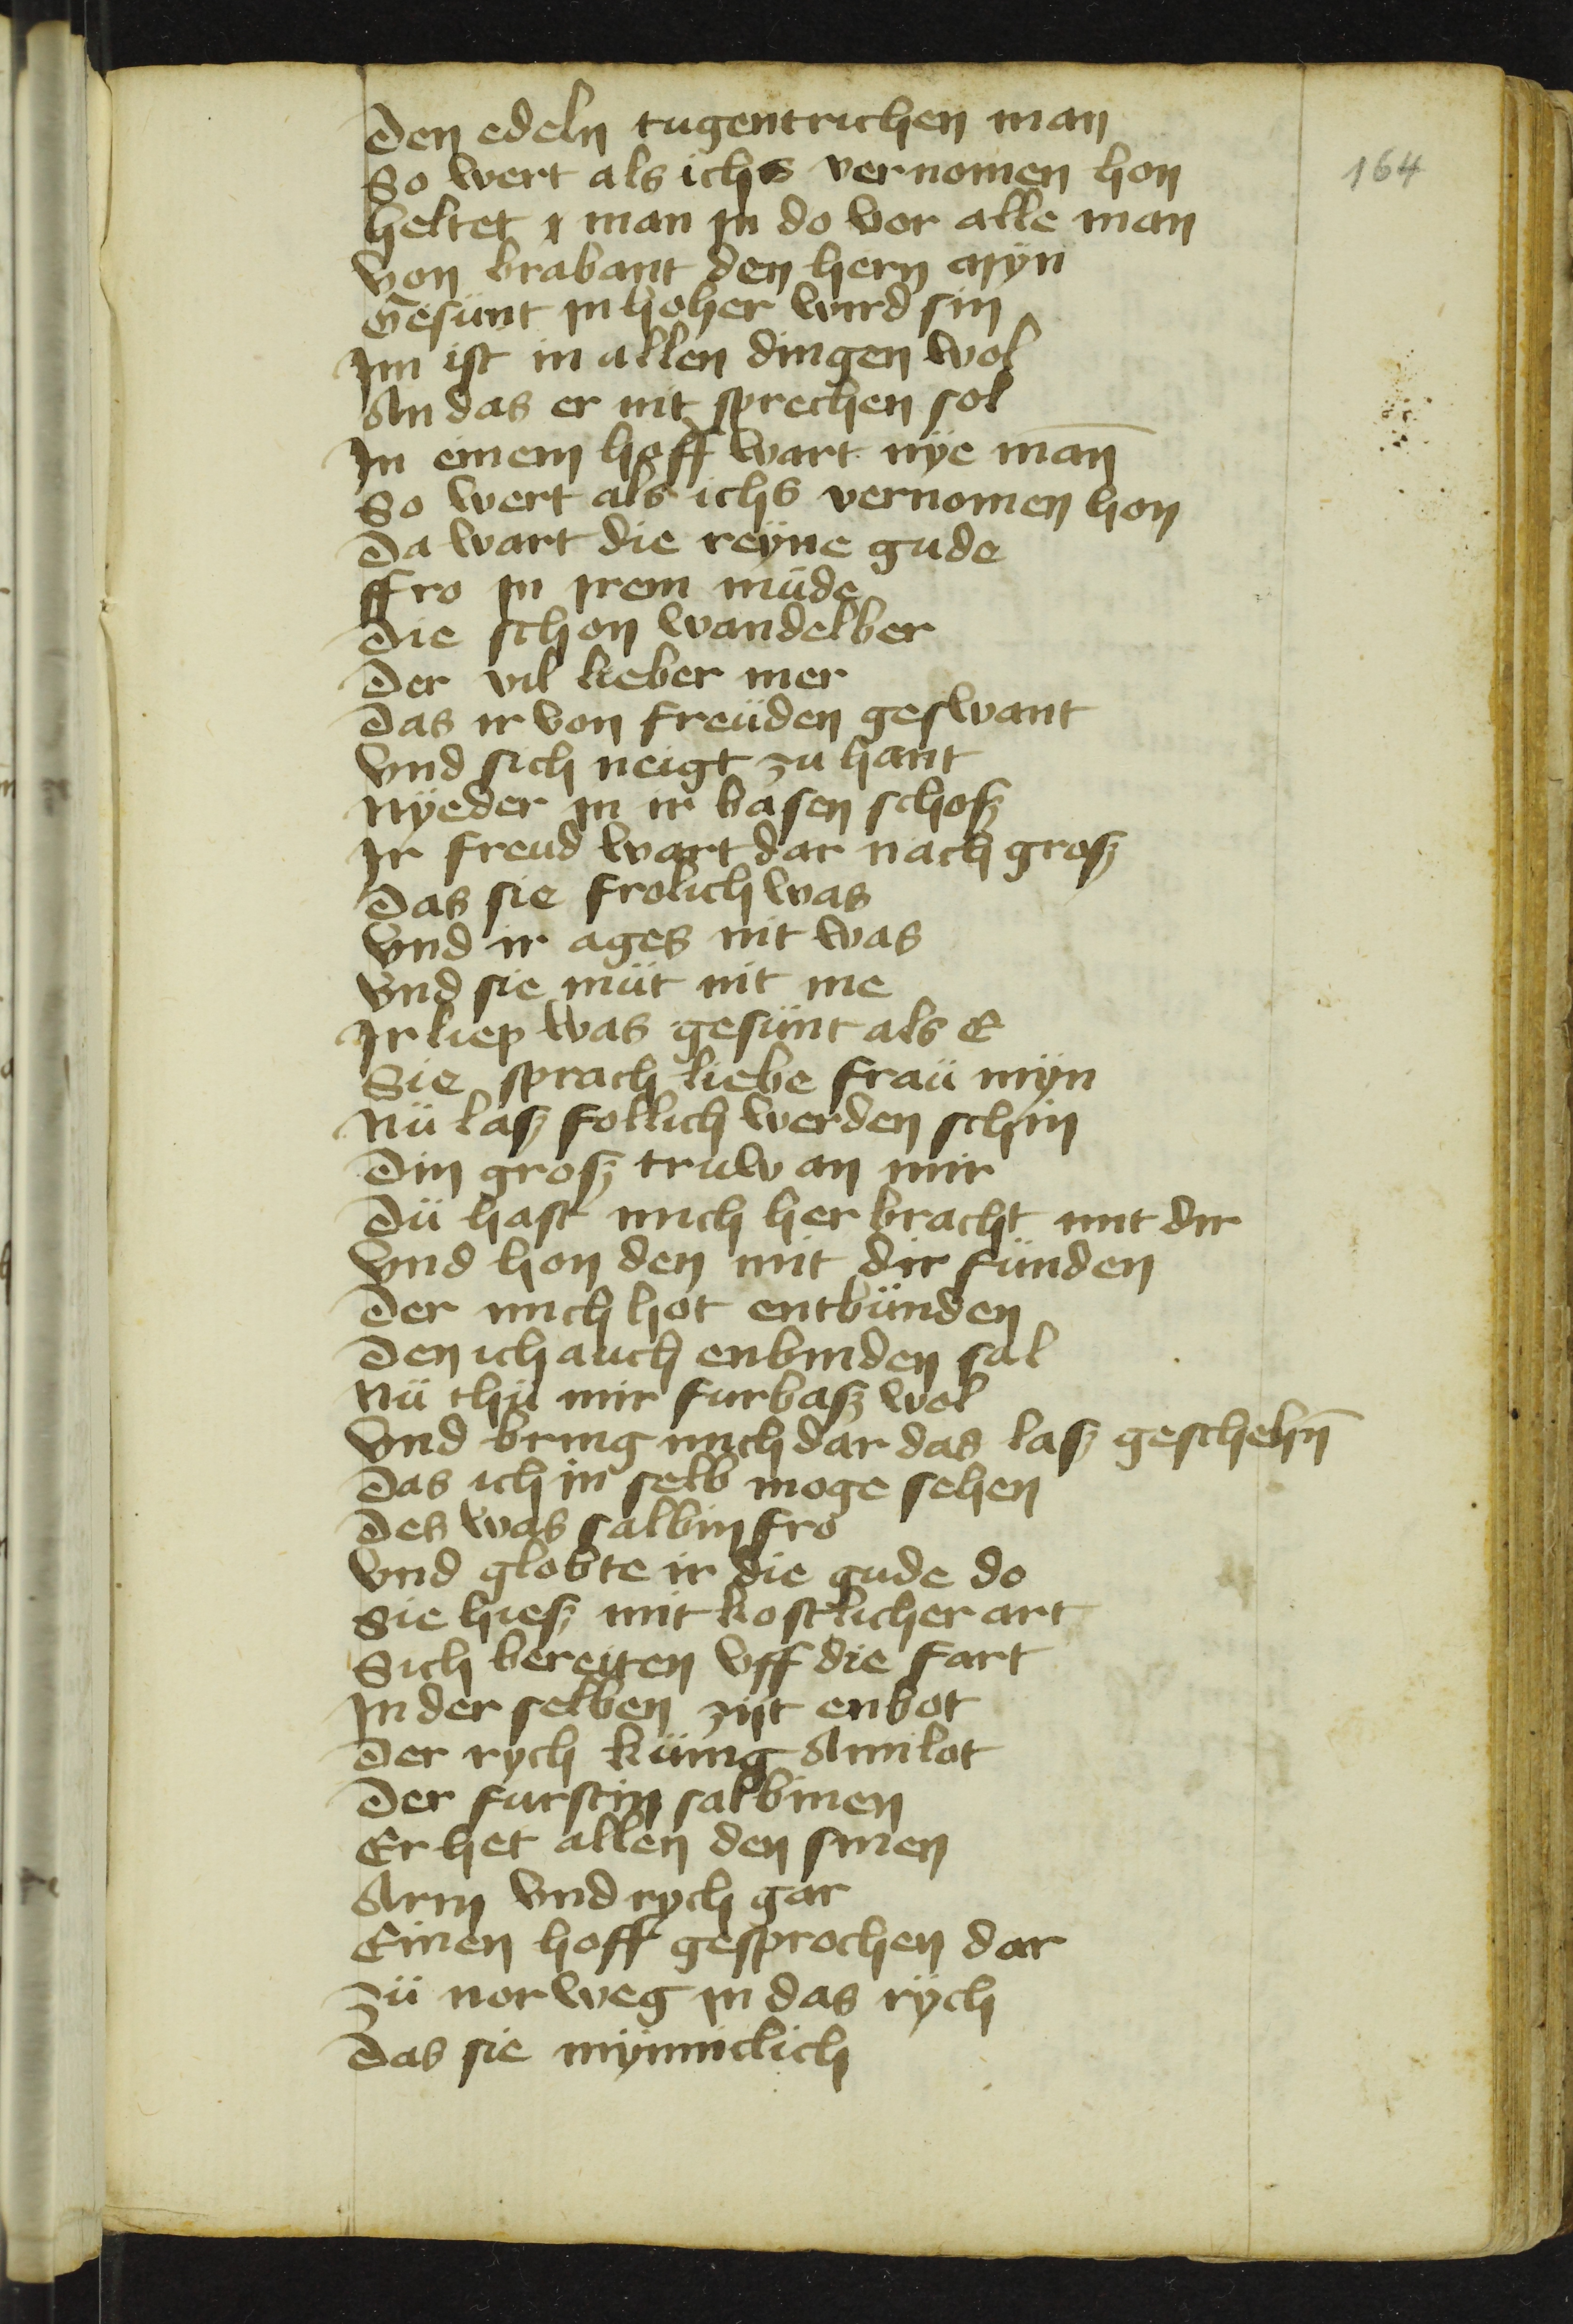 Den edeln tugentrichen man
164
So wert als ichs vernomen hon
heltet man jn do vor alle man
Von brabant den hern myn
Gesünt jn hoher wird sin
Jm ist in allen dingen wol
An das er nit sprechen sol
Jn einem hoff wart nÿe man̄
So wert als ichs vernomen hon
Da wart die reÿne gude
ffro jn jrem müde
Die schon wandelber
Der vil lieber mer
Das ir von freüden geswant
Vnd sich neigt zu hant
Nÿeder jn ir basen schosz
Jr freud wart dar nach grosz
Das sie frolich was
Vnd ir ages nit was
Vnd sie müt nit me
Jr liep was gesünt als E
Sie sprach liebe fraü mÿn
Nü lasz follich werden schin
Din grosz truw an mir
Dü hast mich her bracht mit dir
Vnd hon den mit dir fünden
Der mich hot entbünden
Den ich auch enbinden sal
Nü thü mir furbasz wol
Vnd bring mich dar das lasz geschehn̄
Das ich in selb moge sehen
Des was salbin fro
Vnd globte ir die gude do
Sie hiesz mit kostlicher art
Sich bereiten vff die fart
Jn der selben zijt enbot
Der rych künig Amilot
Der furstin salbinen
Er het allen den sinen
Arm vnd rych gar
Einen hoff gesprochen dar
Zü norweg jn das rÿch
Das sie mÿnniclich